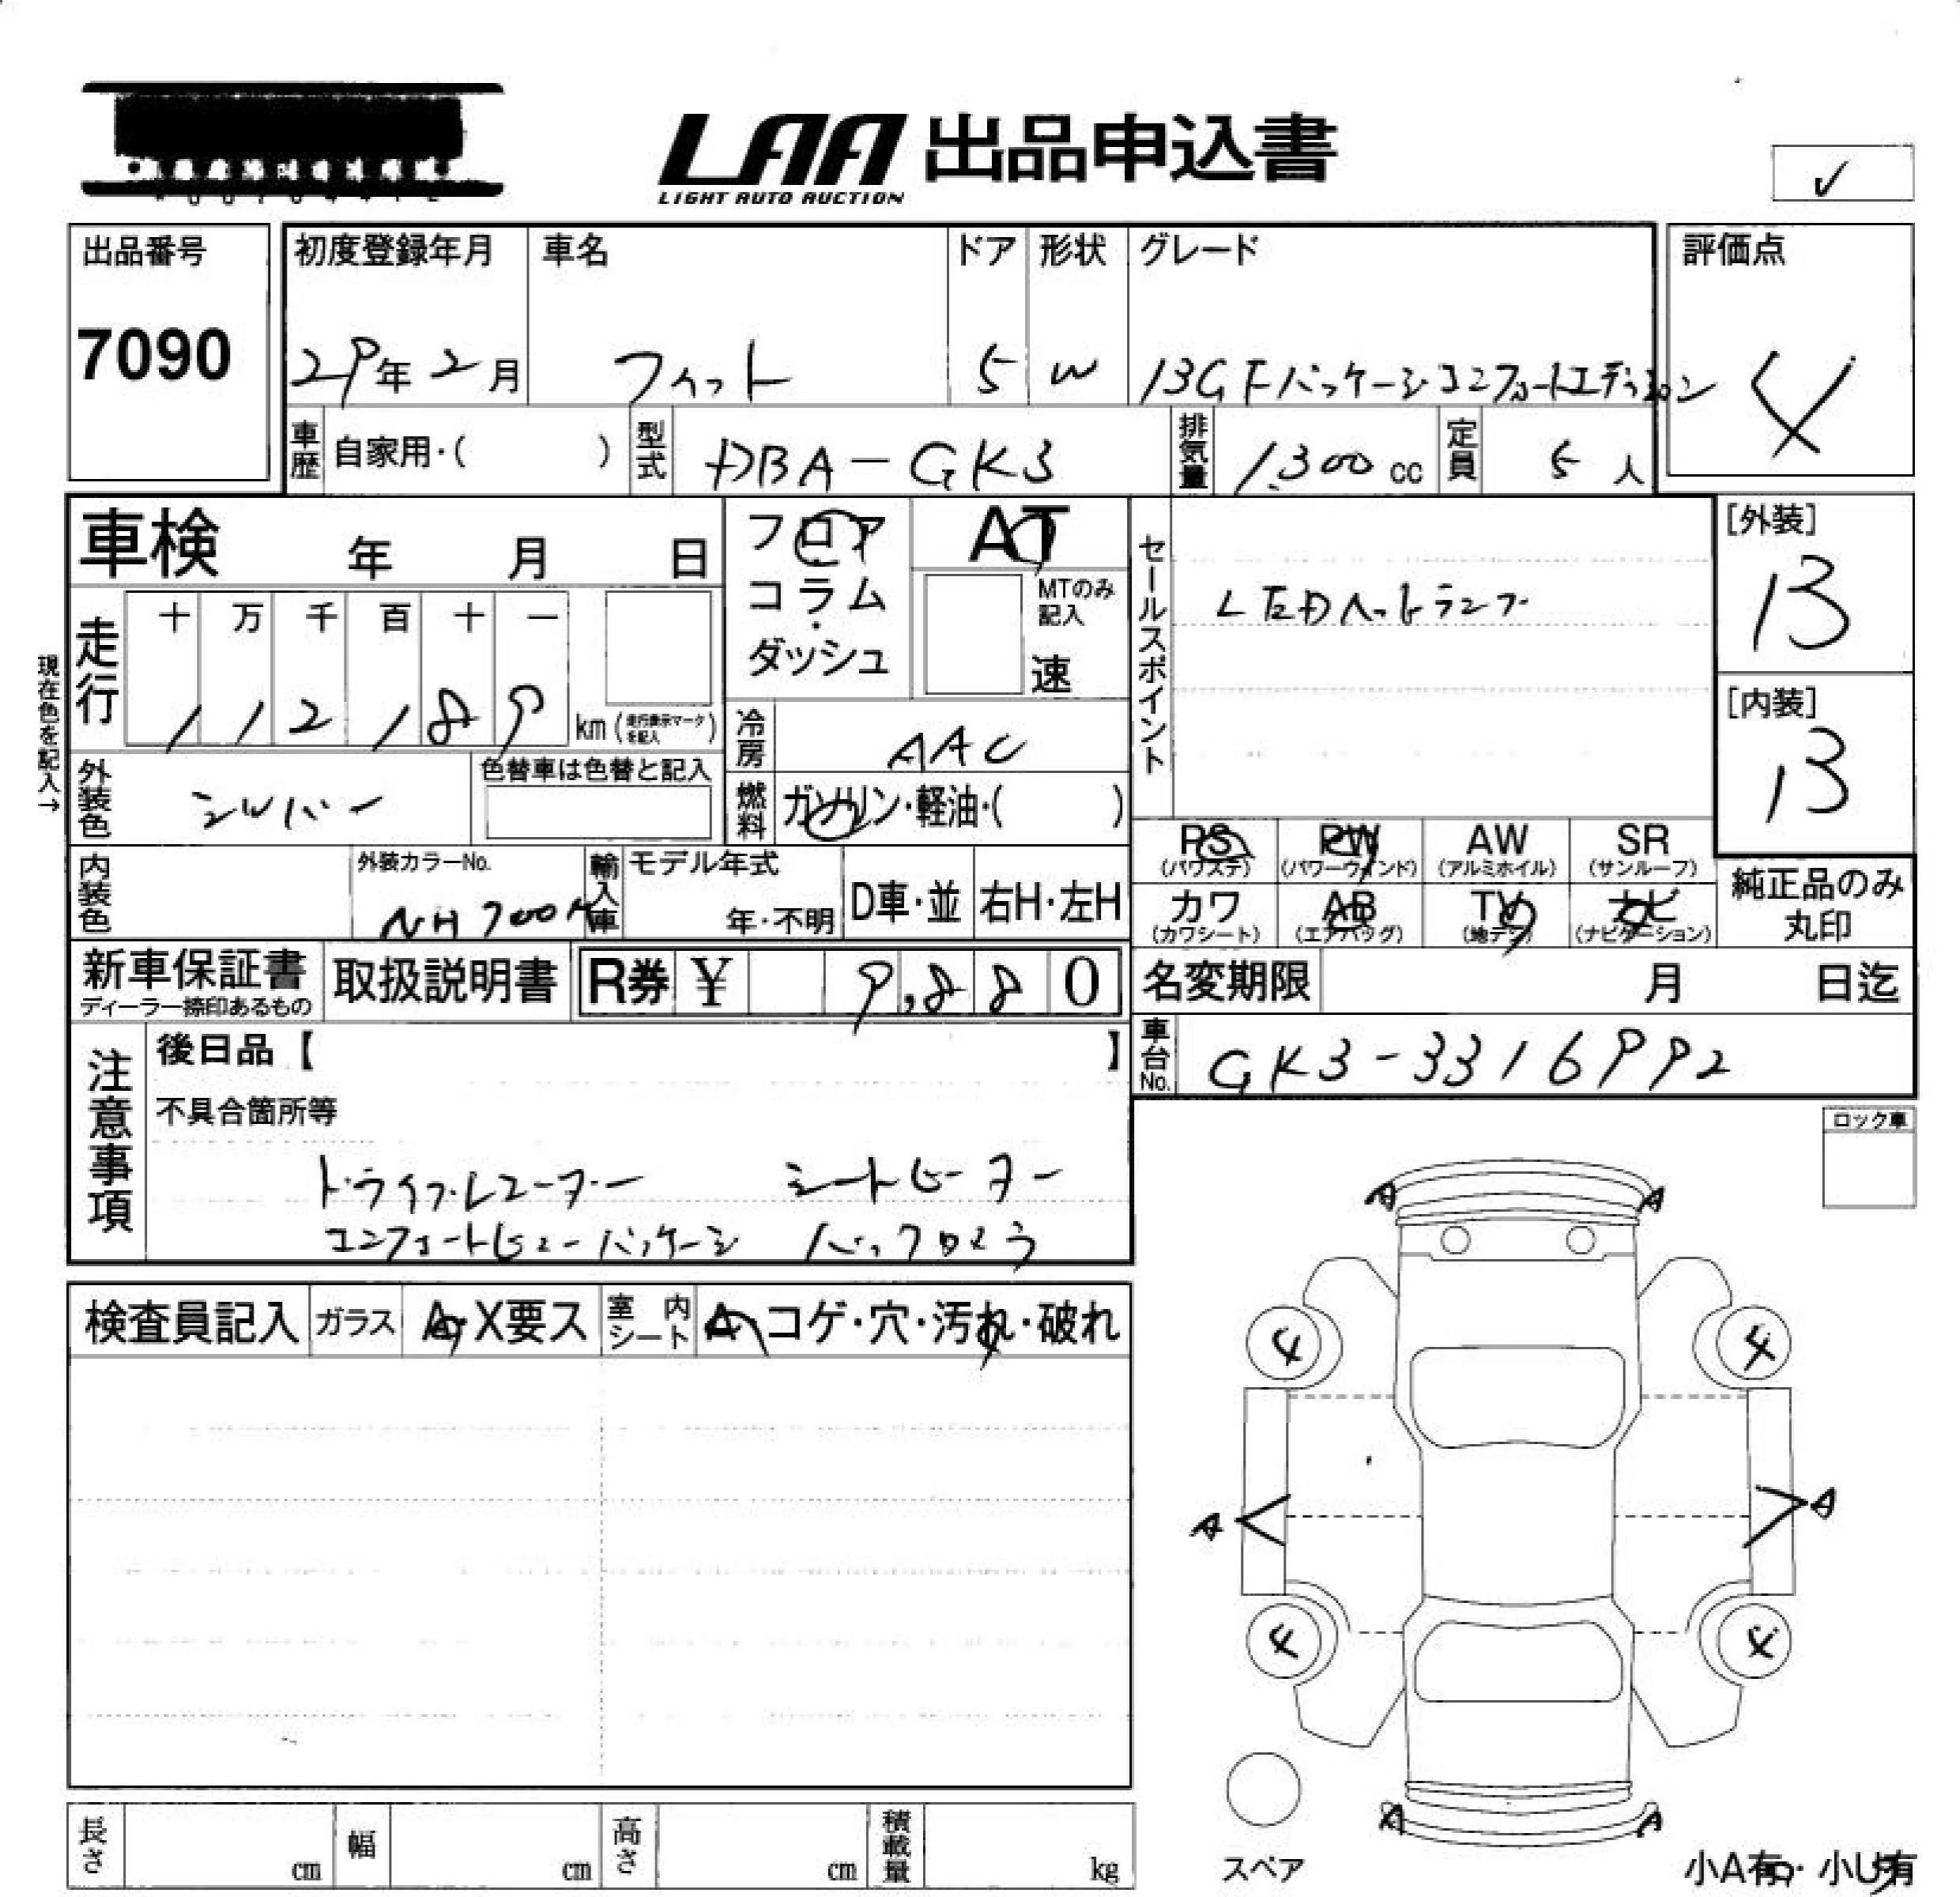 LAA 出品申込書
LIGHT AUTO AUCTION
✓
出品番号
7090
初度登録年月
29年2月
車名
フィット
ドア
5
形状
W
グレード
13G Fパッケージ コンフォートエディション
評価点
4
車歴 自家用・( )
型式 DBA-GK3
排気量 1,300 cc
定員 5 人
車検 年 月 日
フロア・コラム・ダッシュ
AT
MTのみ記入
速
セールスポイント
LEDヘットランフ
[外装]
B
[内装]
B
現在色を記入→
走行 十 万 千 百 十 一
1 1 2 1 8 9 km (走行表示マークを記入)
冷房 AAC
外装色 シルバー
色替車は色替と記入
燃料 ガソリン・軽油・( )
内装色
外装カラーNo.
NH700M
輸入車
モデル年式
年・不明
D車・並
右H・左H
PS (パワステ)
PW (パワーウィンド)
AW (アルミホイル)
SR (サンルーフ)
カワ (カワシート)
AB (エアバッグ)
TV (地デジ)
ナビ (ナビゲーション)
純正品のみ丸印
新車保証書
ディーラー捺印あるもの
取扱説明書
R券 ¥ 9,880
名変期限 月 日迄
車台No. GK3-3316992
注意事項
後日品【 】
不具合箇所等
ドライブレコーダー シートヒーター
コンフォートビューパッケージ バックカメラ
ロック車
検査員記入
ガラス A・X要ス
室内シート A・コゲ・穴・汚れ・破れ
A A
4 4
A A
4 4
A A
スペア
長さ cm
幅 cm
高さ cm
積載量 kg
小A有・小U有